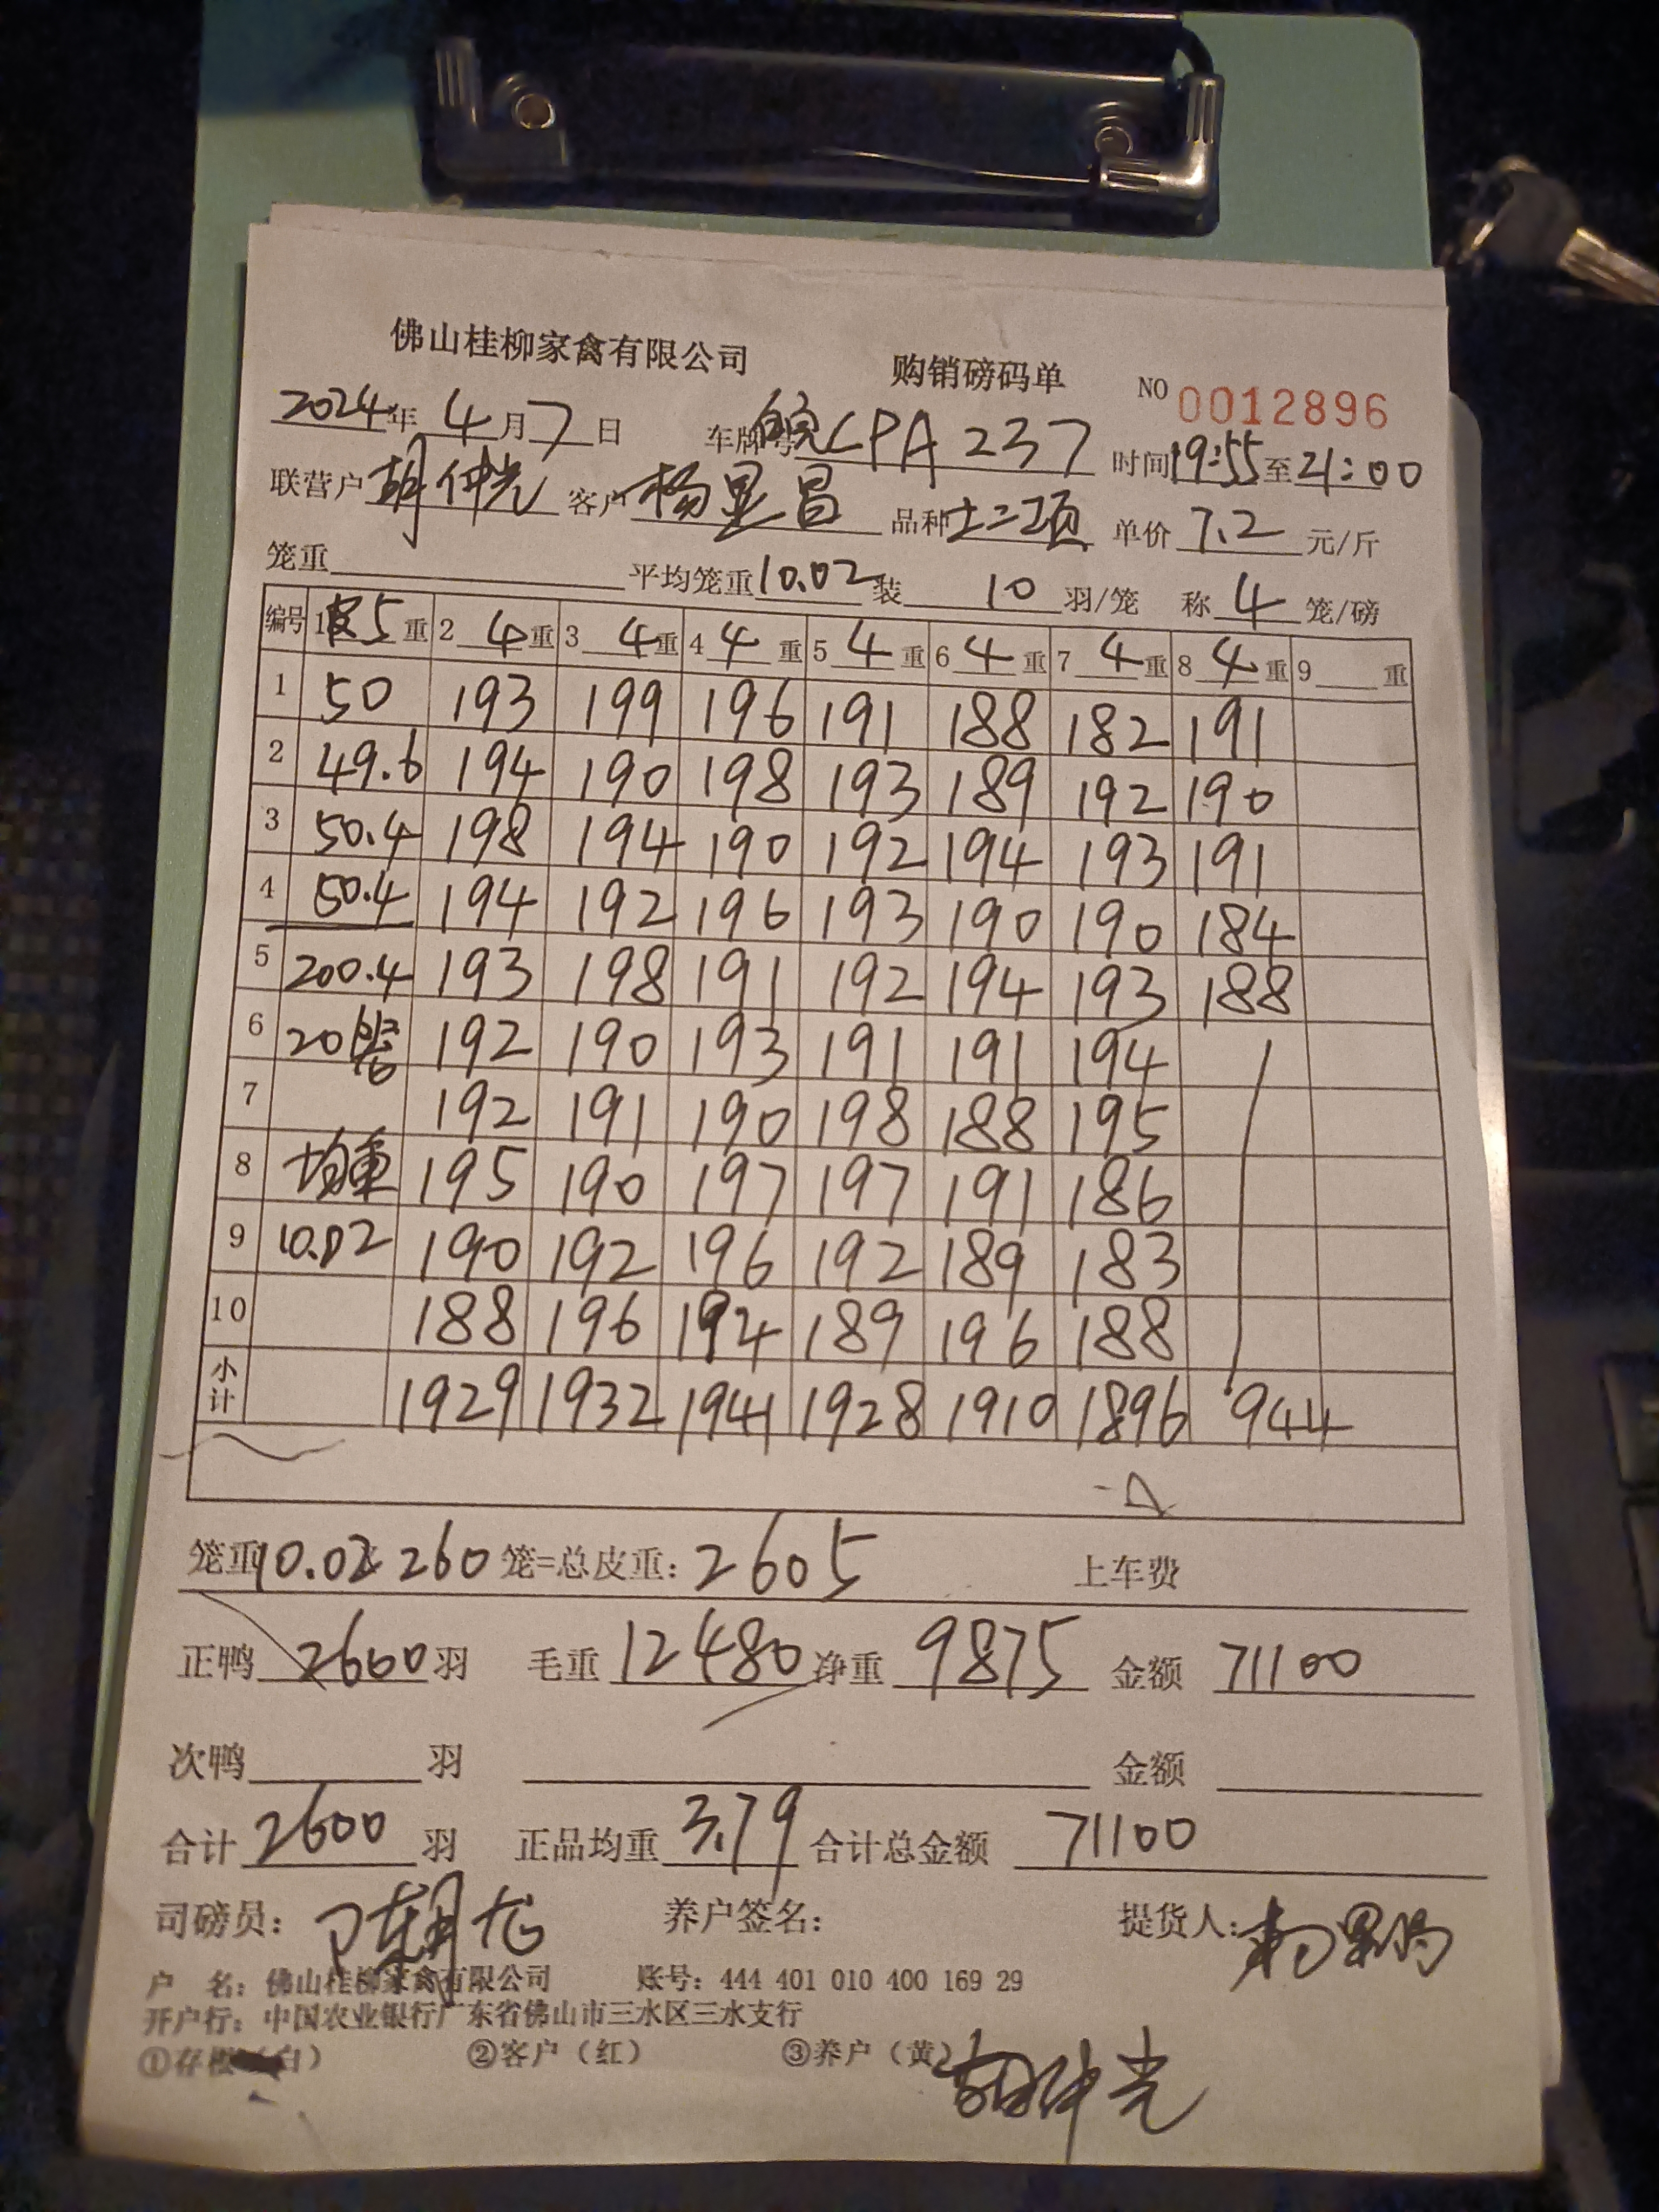 佛山桂柳家禽有限公司 购销磅码单 NO 0012896
2024年 4月 7日 车牌号 皖CPA237 时间 19:55 至 21:00
联营户 胡仲光 客户 杨显昌 品种 土二项 单价 7.2 元/斤
笼重 平均笼重 10.02 装 10 羽/笼 称 4 笼/磅
编号 1 皮5 重 2 4 重 3 4 重 4 4 重 5 4 重 6 4 重 7 4 重 8 4 重 9 重
1 50 193 199 196 191 188 182 191
2 49.6 194 190 198 193 189 192 190
3 50.4 198 194 190 192 194 193 191
4 50.4 194 192 196 193 190 190 184
5 200.4 193 198 191 192 194 193 188
6 20 192 190 193 191 191 194
7 192 191 190 198 188 195
8 均重 195 190 197 197 191 186
9 10.02 190 192 196 192 189 183
10 188 196 194 189 196 188
小计 1929 1932 1941 1928 1910 1896 944
笼重 10.02 260 笼=总皮重: 2605 上车费
正鸭 2600 羽 毛重 12480 净重 9875 金额 71100
次鸭 羽 金额
合计 2600 羽 正品均重 3.79 合计总金额 71100
司磅员: 陈朝龙 养户签名: 提货人:
户 名: 佛山桂柳家禽有限公司 账号: 444 401 010 400 169 29
开户行: 中国农业银行广东省佛山市三水区三水支行
①存根（白） ②客户（红） ③养户（黄）
胡仲光